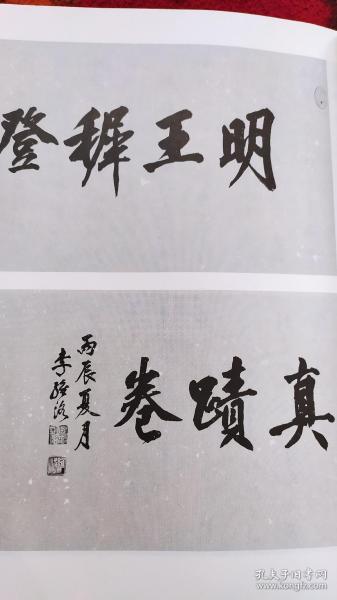 明王穉登
真蹟卷
丙辰夏月
李經
孔夫子旧书网